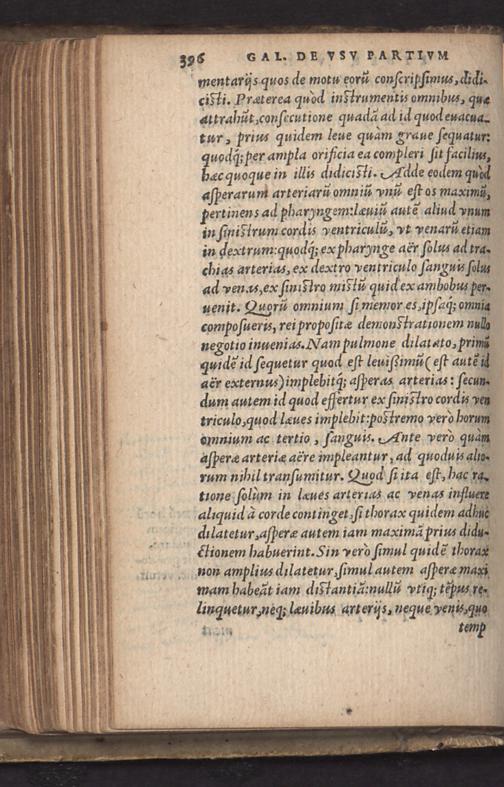 396 GAL. DE VSV PARTIVM
mentarijs quos de motu eorũ conscripsimus, didi-
cisti. Præterea quòd instrumentis omnibus, quæ
attrahũt, consecutione quadã ad id quod euacua-
tur, prius quidem leue quàm graue sequatur:
quodq́; per ampla orificia ea compleri sit facilius,
hæc quoque in illis didicisti. Adde eodem quòd
asperarum arteriarũ omniũ vnũ est os maximũ,
pertinens ad pharyngem: læuiũ autẽ aliud vnum
in sinistrum cordis ventriculũ, vt venarũ etiam
in dextrum: quodq́; ex pharynge aër solus ad tra-
chias arterias, ex dextro ventriculo sanguis solus
ad venas, ex sinistro mistũ quid ex ambobus per-
uenit. Quorũ omnium si memor es, ipsaq́; omnia
composueris, rei propositæ demonstrationem nullo
negotio inuenias. Nam pulmone dilatato, primũ
quidẽ id sequetur quod est leuißimũ (est autẽ id
aër externus) implebitq́; asperas arterias: secun-
dum autem id quod effertur ex sinistro cordis ven
triculo, quod læues implebit: postremo verò horum
omnium ac tertio, sanguis. Ante verò quàm
asperæ arteriæ aëre impleantur, ad quoduis alio-
rum nihil transumitur. Quod si ita est, hac ra-
tione solùm in læues arterias ac venas influere
aliquid à corde continget, si thorax quidem adhuc
dilatetur, asperæ autem iam maximã prius didu-
ctionem habuerint. Sin verò simul quidẽ thorax
non amplius dilatetur, simul autem asperæ maxi
mam habeãt iam distantiã: nullũ vtiq́; tẽpus re-
linquetur, neq́; læuibus arterijs, neque venis, quo
temp